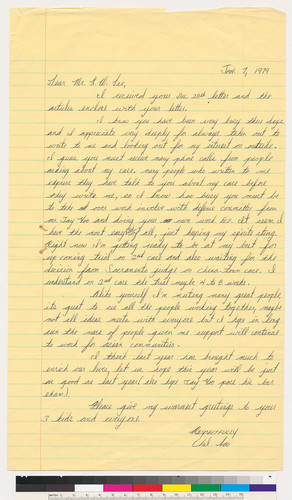 Jan. 7, 1979
Dear Mr. K. W. Lee,
I received your Dec 28th letter and the
articles enclose with your letter.
I know you have been very busy these days
and I appreciate very deeply for always take out to
write to me and looking out for my interest on outside.
I guess you must receive many phone calls from people
asking about my case. many people who written to me
express they have talk to you about my case before
they write me, so I know how busy you must be
to the over work involve with defense committee from
Mr. Jay Yoo and doing your own work too. It seem I
have the most easy of all, just keeping my spirits strong.
Right now I'm getting ready to be at my best for
up coming trial on 2nd case and also waiting for the
decision from Sacramento judge on china-town case. I
understand on 2nd case the trial maybe 4 to 8 weeks.
Alike yourself I'm meeting many great people,
its great to see all the people working together, maybe
not all ideas mate with everyone but I hope in long
run the mass of people given me support will continue
to work for asian communities.
I think last year has brought much to
enrich our lives, let us hope this year will be just
as good as last year! also hope Jay Yoo pass his bar
exam!
Please give my warmest greetings to your
3 kids and everyone.
Respectfully
Chol Soo